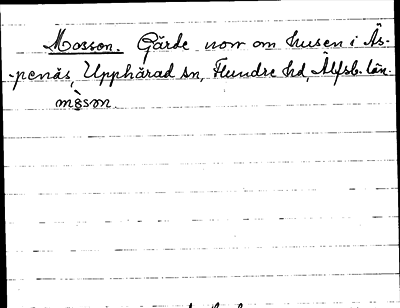 Mosson. Gärde norr om husen i Äs-
-penäs, Upphärad sn, Flundre hd, Älfsb. län.